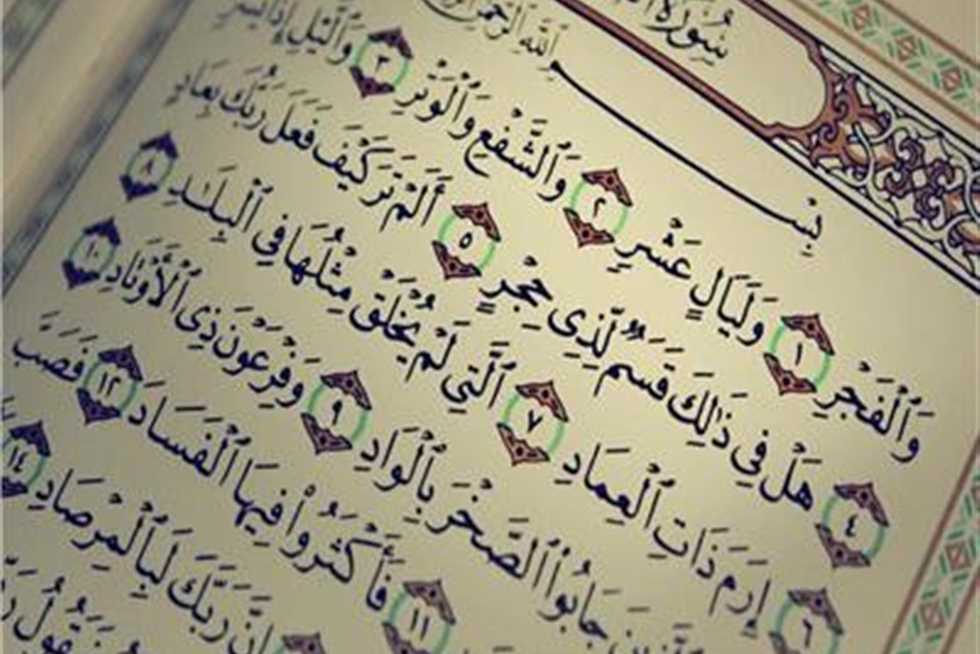 سُورَةُ
بِسْمِ ٱللَّهِ ٱلرَّحْمَٰنِ
وَٱلْفَجْرِ ١ وَلَيَالٍ عَشْرٍ ٢ وَٱلشَّفْعِ وَٱلْوَتْرِ ٣ وَٱلَّيْلِ إِذَا يَسْرِ
٤ هَلْ فِى ذَٰلِكَ قَسَمٌ لِّذِى حِجْرٍ ٥ أَلَمْ تَرَ كَيْفَ فَعَلَ رَبُّكَ بِعَادٍ
٦ إِرَمَ ذَاتِ ٱلْعِمَادِ ٧ ٱلَّتِى لَمْ يُخْلَقْ مِثْلُهَا فِى ٱلْبِلَٰدِ ٨
جَابُوا۟ ٱلصَّخْرَ بِٱلْوَادِ ٩ وَفِرْعَوْنَ ذِى ٱلْأَوْتَادِ ١٠
١١ فَأَكْثَرُوا۟ فِيهَا ٱلْفَسَادَ ١٢ فَصَبَّ
إِنَّ رَبَّكَ لَبِٱلْمِرْصَادِ ١٤